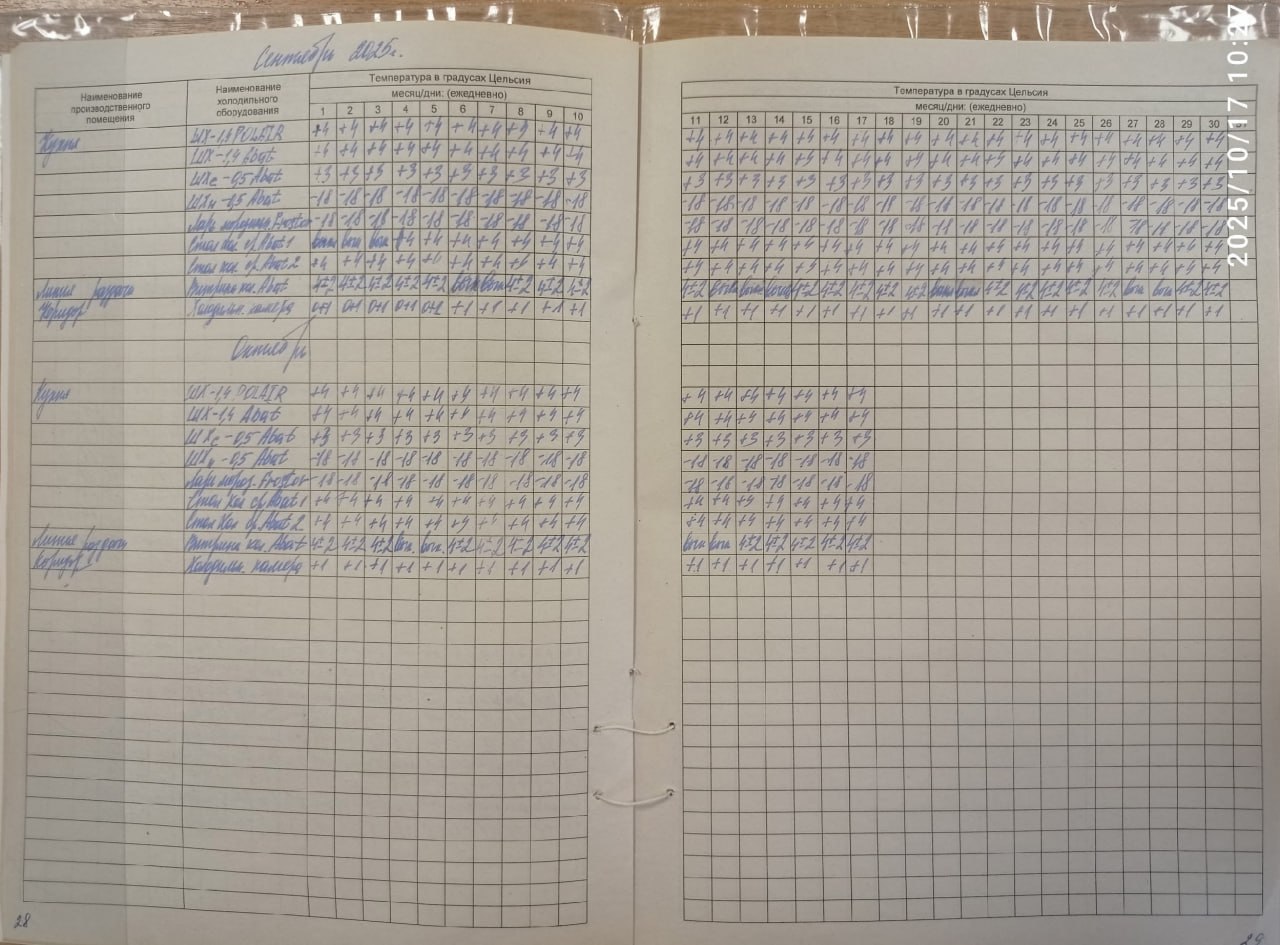 Сентябрь 2025г.
Наименование производственного помещения
Наименование холодильного оборудования
Температура в градусах Цельсия
месяц/дни: (ежедневно)
1 2 3 4 5 6 7 8 9 10
Кухня ШХ-1,4 POLAIR +4 +4 +4 +4 +4 +4 +4 +4 +4 +4
ШХ-1,4 Abat +4 +4 +4 +4 +4 +4 +4 +4 +4 +4
ШХс-0,5 Abat +3 +3 +3 +3 +3 +3 +3 +3 +3 +3
ШХн-0,5 Abat -18 -18 -18 -18 -18 -18 -18 -18 -18 -18
Ларь Frostor -18 -18 -18 -18 -18 -18 -18 -18 -18 -18
Стол хол. ср. Abat 1 +4 +4 +4 +4 +4 +4 +4
Стол хол. ср. Abat 2 +4 +4 +4 +4 +4 +4 +4 +4 +4 +4
Линия раздачи Витрина хол. Abat 4±2 4±2 4±2 4±2 4±2 4±2 4±2 4±2
Коридор Холодильн. камера 0+1 0+1 0+1 0+1 0+1 +1 +1 +1 +1 +1
Октябрь
Кухня ШХ-1,4 POLAIR +4 +4 +4 +4 +4 +4 +4 +4 +4 +4
ШХ-1,4 Abat +4 +4 +4 +4 +4 +4 +4 +4 +4 +4
ШХс-0,5 Abat +3 +3 +3 +3 +3 +3 +3 +3 +3 +3
ШХн-0,5 Abat -18 -18 -18 -18 -18 -18 -18 -18 -18 -18
Ларь мороз. Frostor -18 -18 -18 -18 -18 -18 -18 -18 -18 -18
Стол хол ср. Abat 1 +4 +4 +4 +4 +4 +4 +4 +4 +4 +4
Стол хол ср. Abat 2 +4 +4 +4 +4 +4 +4 +4 +4 +4 +4
Линия раздачи Витрина хол. Abat 4±2 4±2 4±2 4±2 4±2 4±2 4±2 4±2
Коридор Холодильн. камера +1 +1 +1 +1 +1 +1 +1 +1 +1 +1
28
Температура в градусах Цельсия
месяц/дни: (ежедневно)
11 12 13 14 15 16 17 18 19 20 21 22 23 24 25 26 27 28 29 30 31
+4 +4 +4 +4 +4 +4 +4 +4 +4 +4 +4 +4 +4 +4 +4 +4 +4 +4 +4 +4
+4 +4 +4 +4 +4 +4 +4 +4 +4 +4 +4 +4 +4 +4 +4 +4 +4 +4 +4 +4
+3 +3 +3 +3 +3 +3 +3 +3 +3 +3 +3 +3 +3 +3 +3 +3 +3 +3 +3 +3
-18 -18 -18 -18 -18 -18 -18 -18 -18 -18 -18 -18 -18 -18 -18 -18 -18 -18 -18 -18
-18 -18 -18 -18 -18 -18 -18 -18 -18 -18 -18 -18 -18 -18 -18 -18 -18 -18 -18 -18
+4 +4 +4 +4 +4 +4 +4 +4 +4 +4 +4 +4 +4 +4 +4 +4 +4 +4 +4 +4
+4 +4 +4 +4 +4 +4 +4 +4 +4 +4 +4 +4 +4 +4 +4 +4 +4 +4 +4 +4
4±2 4±2 4±2 4±2 4±2 4±2 4±2 4±2 4±2 4±2 4±2 4±2 4±2
+1 +1 +1 +1 +1 +1 +1 +1 +1 +1 +1 +1 +1 +1 +1 +1 +1 +1 +1 +1
+4 +4 +4 +4 +4 +4 +4
+4 +4 +4 +4 +4 +4 +4
+3 +3 +3 +3 +3 +3 +3
-18 -18 -18 -18 -18 -18 -18
-18 -16 -18 -18 -18 -18 -18
+4 +4 +3 +4 +4 +4 +4
+4 +4 +4 +4 +4 +4 +4
4±2 4±2 4±2 4±2 4±2
+1 +1 +1 +1 +1 +1 +1
29
2025/10/17 10:27